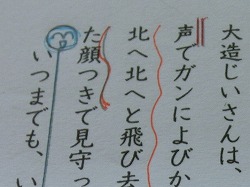 大造じいさんは、
声でガンによびか
北へ北へと飛び去
た顔つきで見守っ
いつまでも、い